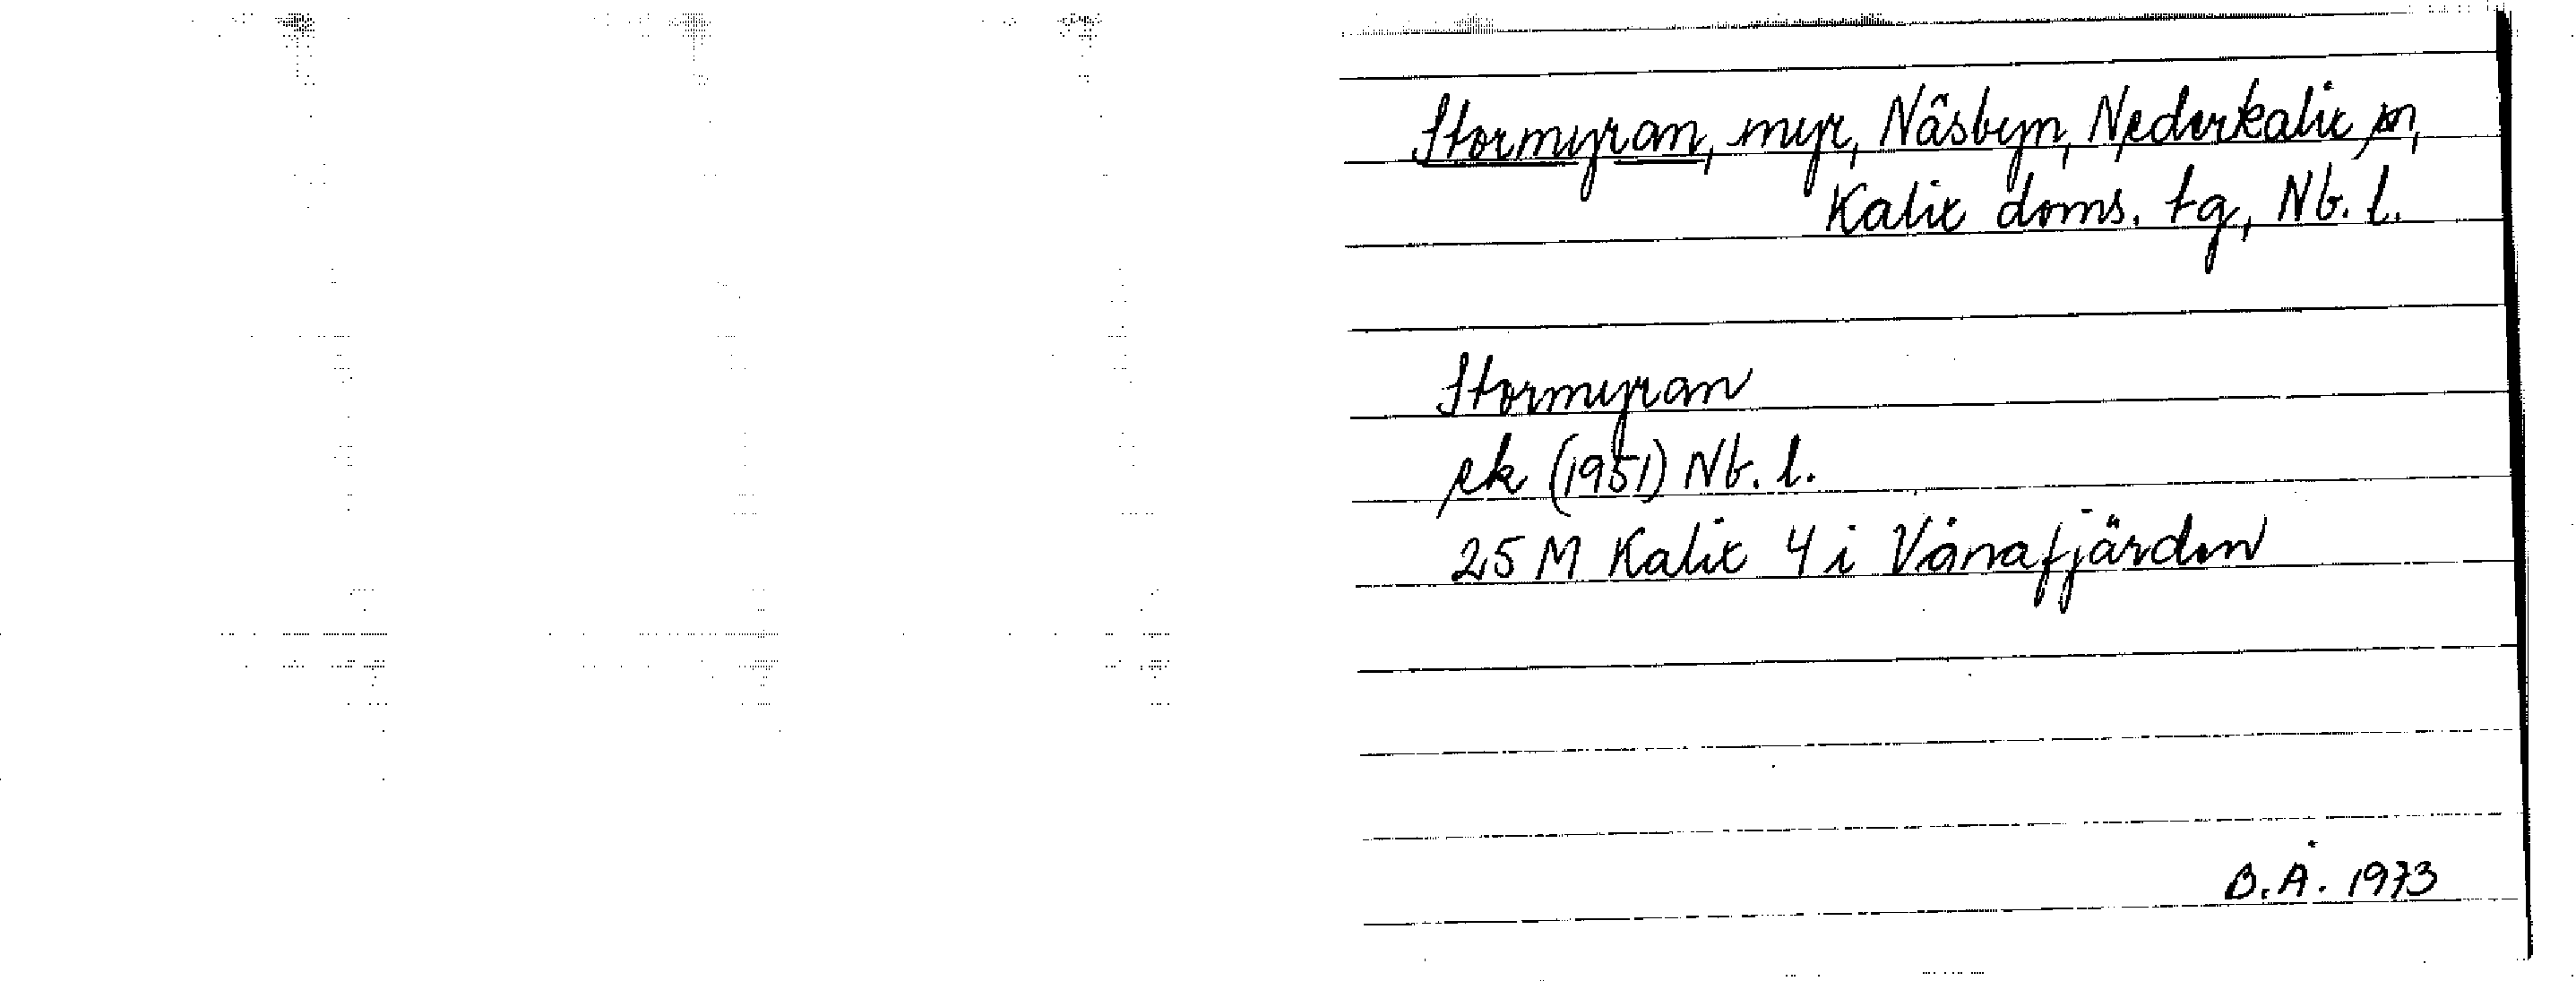 Stormyran, myr, Näsbyn, Nederkalix sn,
Kalix doms. tg, Nb. l.
Stormyran
ek (1951) Nb. l.
25 M Kalix 4 i Vånafjärden
B.Å. 1973